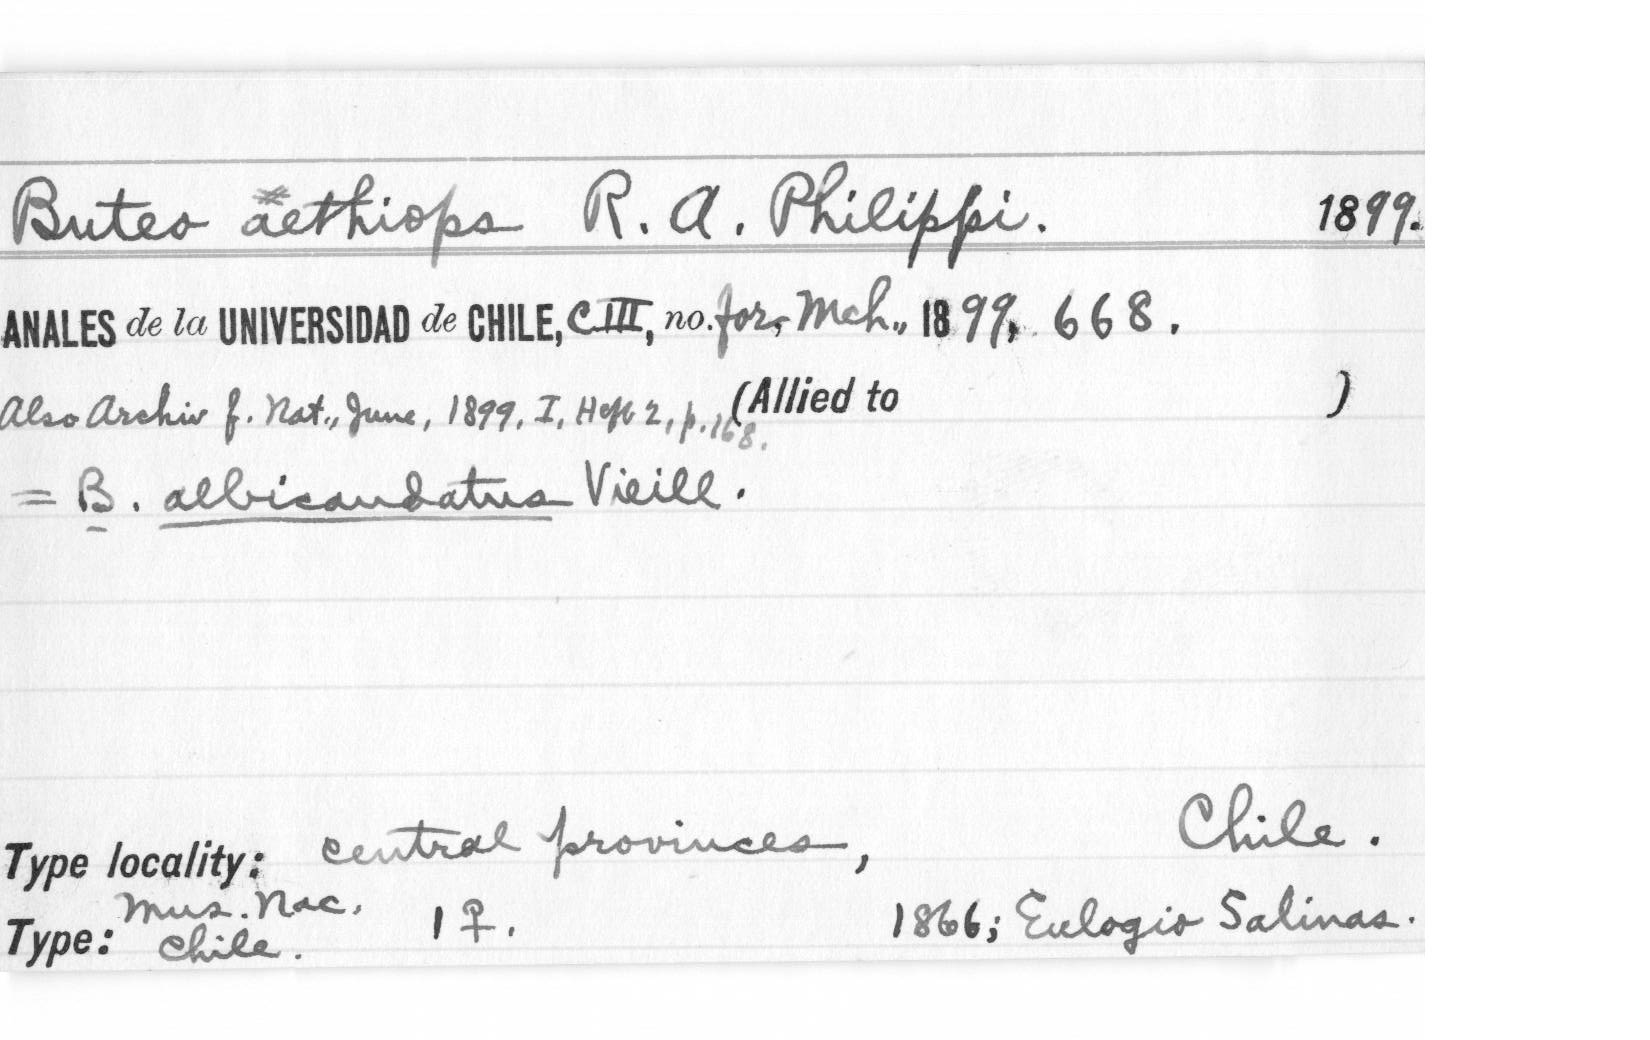 Buteo aethiops R. A. Philippi. 1899.
ANALES de la UNIVERSIDAD de CHILE, CIII, no. for, Mch., 1899, 668.
Also Archiv f. Nat., June, 1899, I, Heft 2, p. 168. (Allied to )
= B. albicaudatus Vieill.
Type locality: central provinces, Chile.
Type: Mus. Nac. Chile. 1 ♀. 1866; Eulogio Salinas.